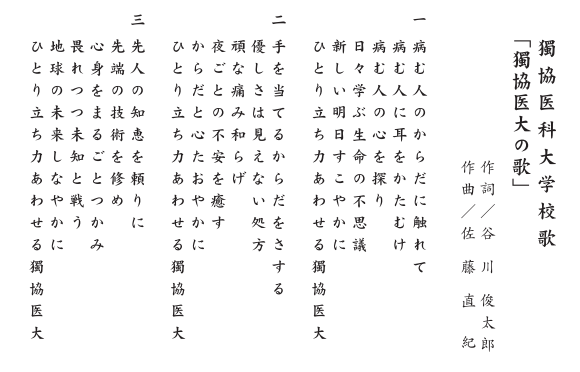 獨協医科大学校歌
「獨協医大の歌」
作詞／谷川 俊太郎
作曲／佐藤 直紀
一 病む人のからだに触れて
病む人に耳をかたむけ
病む人の心を探り
日々学ぶ生命の不思議
新しい明日すこやかに
ひとり立ち力あわせる獨協医大
二 手を当てるからだをさする
優しさは見えない処方
頑な痛み和らげ
夜ごとの不安を癒す
からだと心たおやかに
ひとり立ち力あわせる獨協医大
三 先人の知恵を頼りに
先端の技術を修め
心身をまるごとつかみ
畏れつつ未知と戦う
地球の未来しなやかに
ひとり立ち力あわせる獨協医大